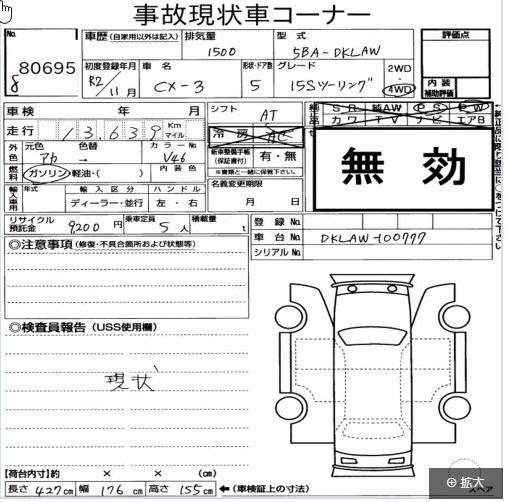 事故現状車コーナー
No. 80695
車歴 (自家用以外は記入) 排気量 1500 型式 5BA-DKLAW 評価点
初度登録年月 R2/11月 車名 CX-3 形状・ドア数 5 グレード 15Sツーリング 2WD・4WD 内装補助評価
車検 年 月 シフト AT 純正品 SR 純AW PS PW
走行 13,639 Km マイル 冷房 AC カワ TV ナビ エアB
外色 元色 アカ 色替 → カラーNo. V46 新車整備手帳(保証書付) 有・無 無効
燃料 ガソリン・軽油・( ) 内装色 ※書類と一緒に保管下さい。
輸入車用 年式 輸入区分 ディーラー・並行 ハンドル 左・右 名義変更期限 月 日
リサイクル預託金 9,200円 乗車定員 5人 積載量 t 登録No.
車台No. DKLAW-100777
◎注意事項 (修復・不具合箇所および状態等) シリアルNo.
◎検査員報告 (USS使用欄)
現状
【荷台内寸】約 × × (cm)
長さ 427cm 幅 176cm 高さ 155cm ←(車検証上の寸法)
スペア
拡大